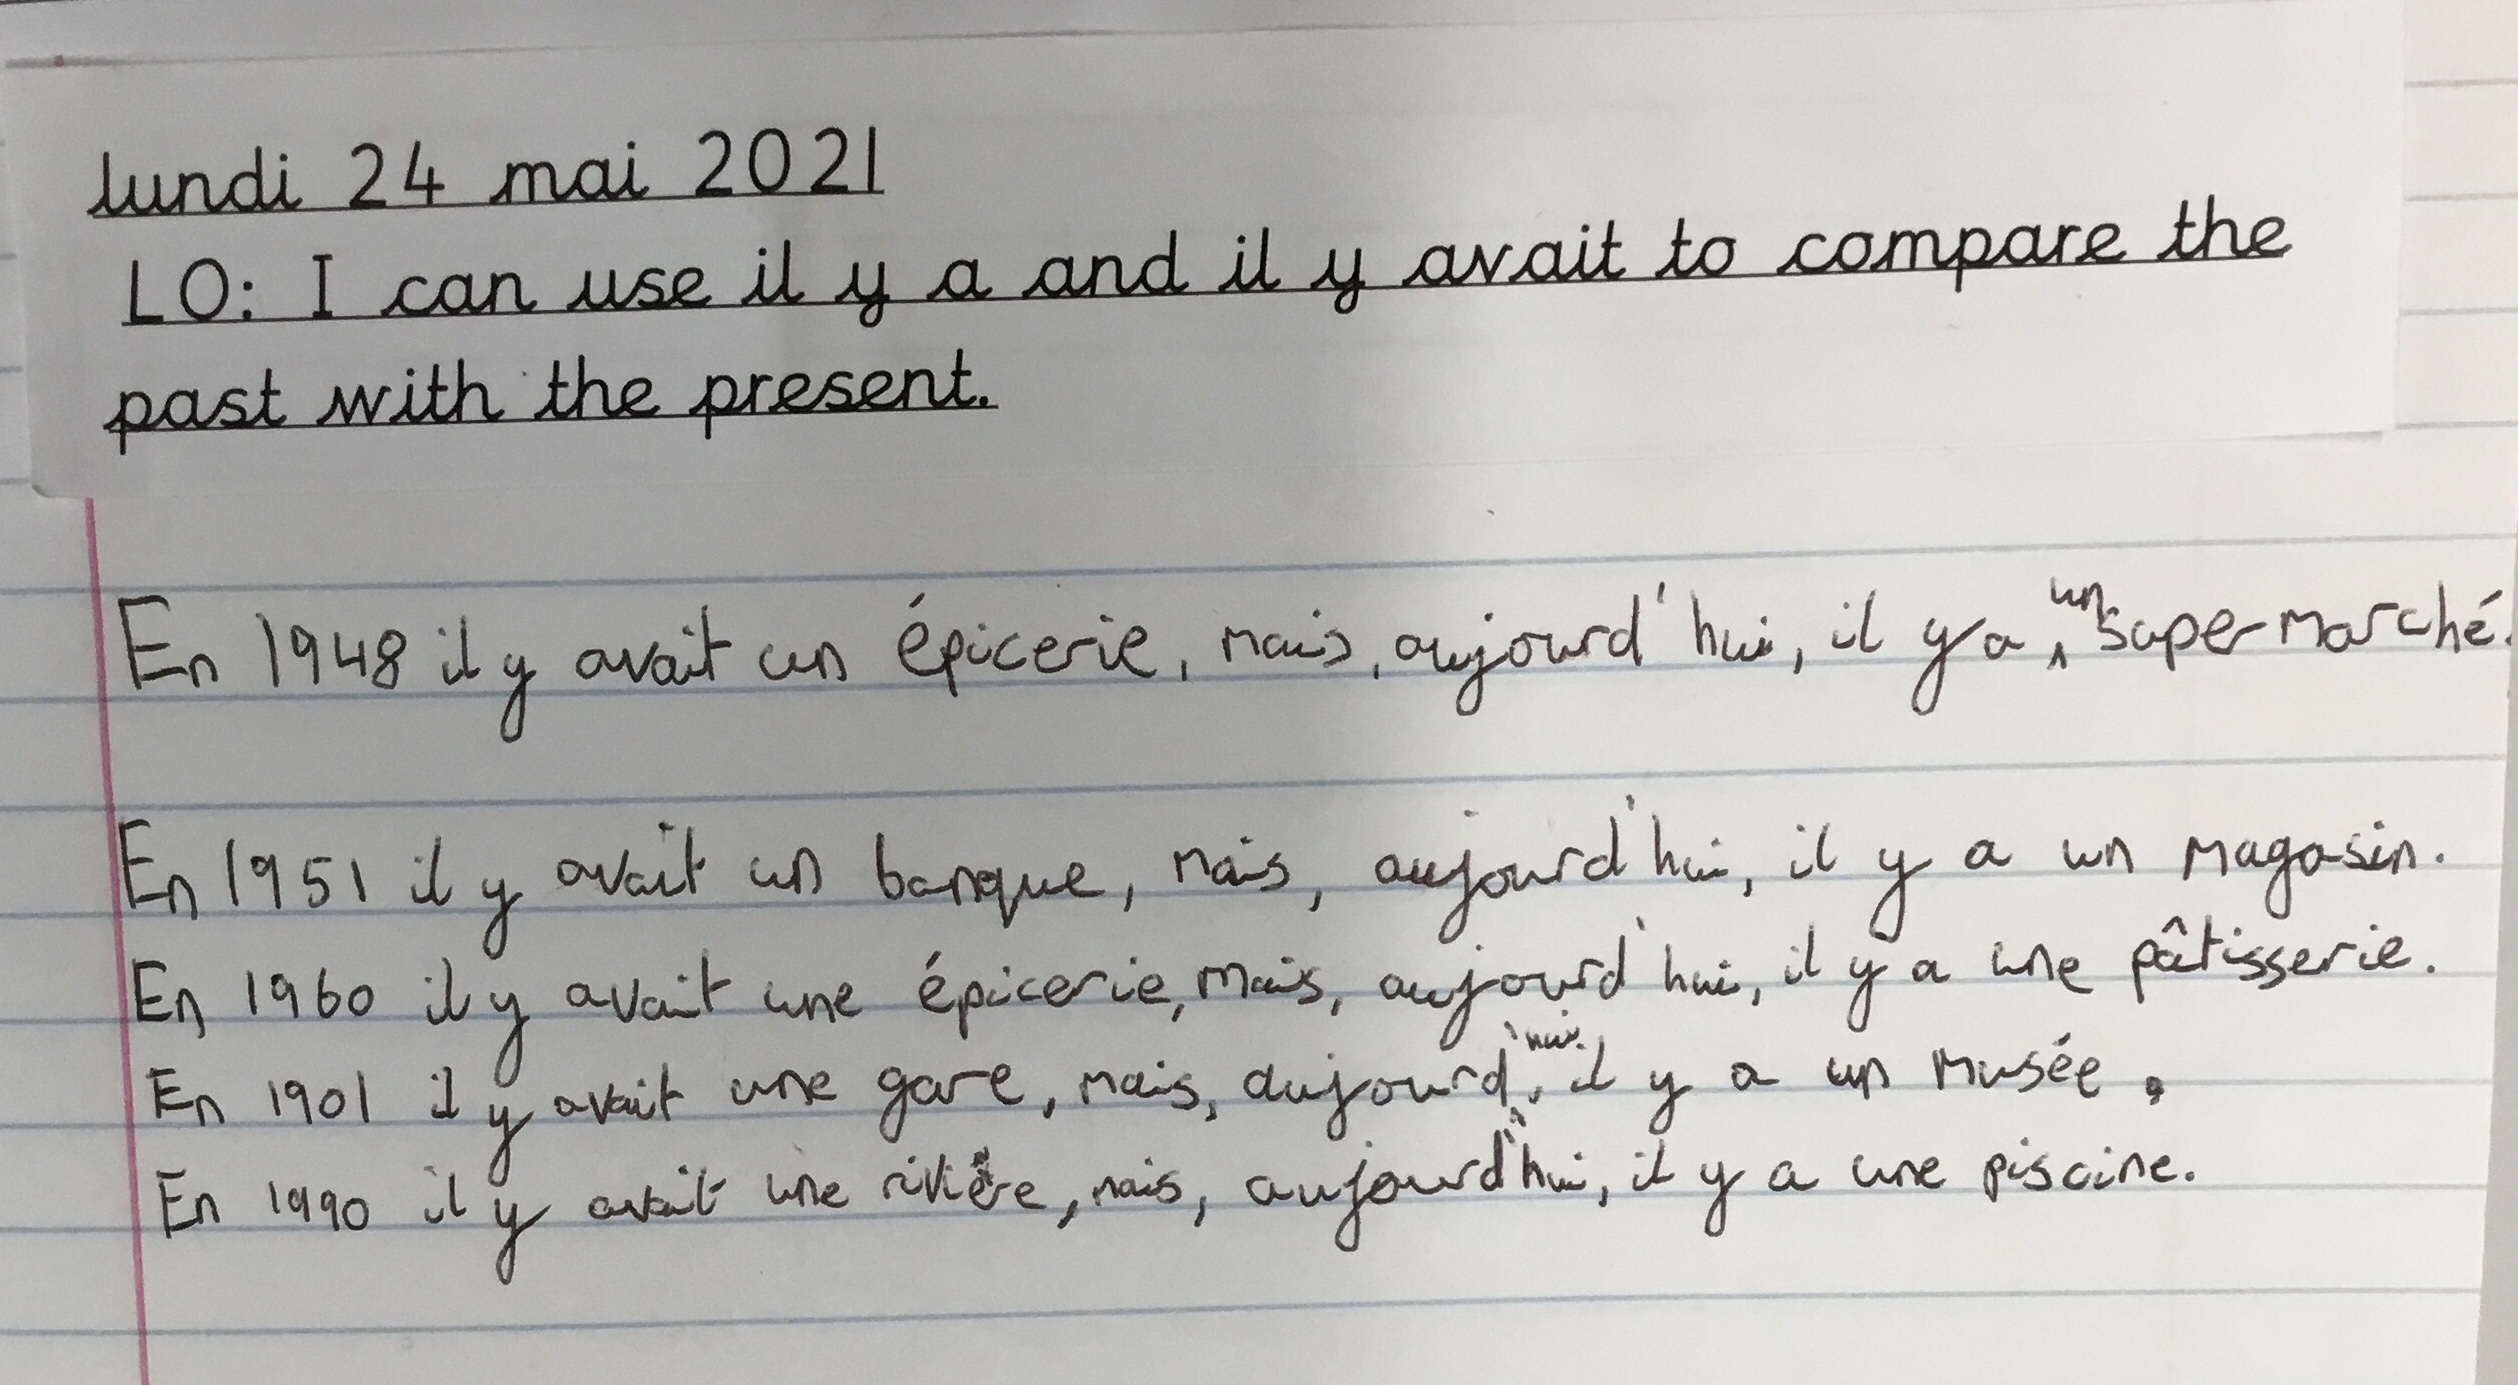 lundi 24 mai 2021
LO: I can use il y a and il y avait to compare the
past with the present.
En 1948 il y avait un épicerie, mais, aujourd'hui, il y a un supermarché.
En 1951 il y avait un banque, mais, aujourd'hui, il y a un magasin.
En 1960 il y avait une épicerie, mais, aujourd'hui, il y a une pâtisserie.
En 1901 il y avait une gare, mais, aujourd'hui, il y a un musée.
En 1990 il y avait une rivière, mais, aujourd'hui, il y a une piscine.